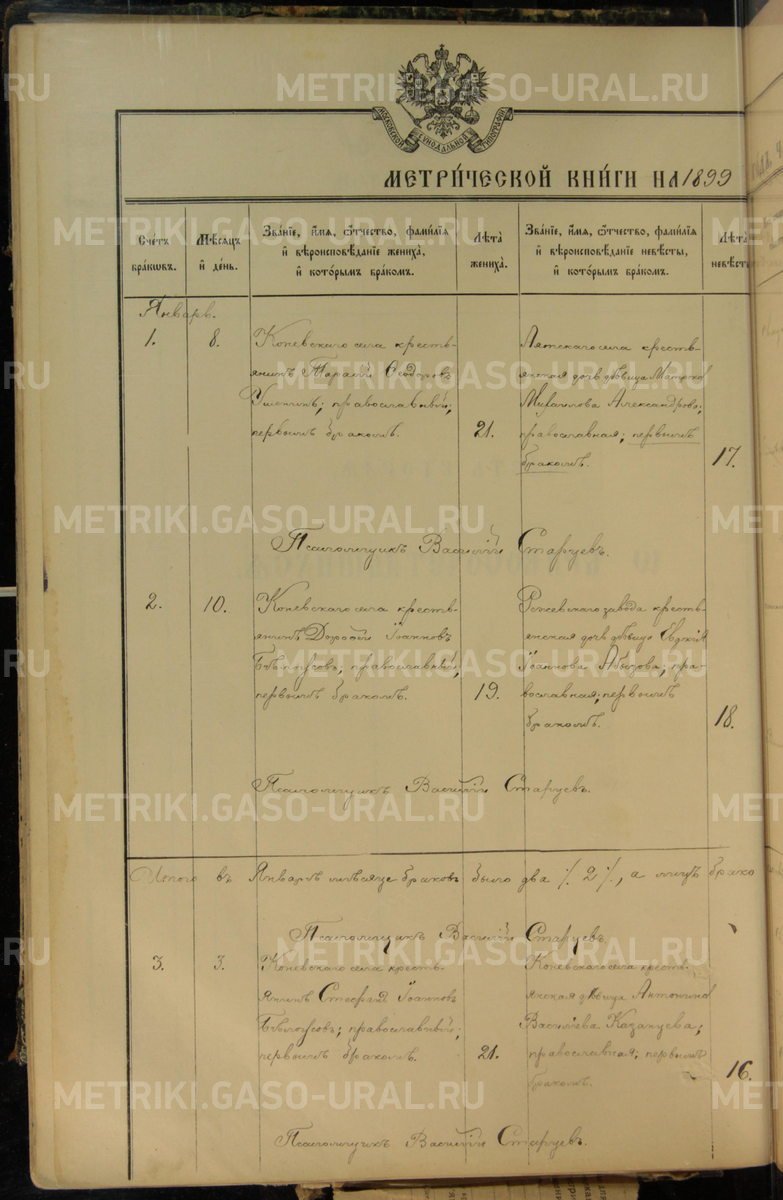 МОСКОВСКОЙ СѴНОДАЛЬНОЙ ТИПОГРАФІИ
МЕТРИ́ЧЕСКОЙ КНИ́ГИ НА 1899
Сче́тъ бра́кѡвъ.
Мѣ́сяцъ и҆ де́нь.
Зва́ніе, и҆́мя, ѻ҆́тчество, фами́лія и҆ вѣроисповѣ́даніе жениха̀, и҆ кото́рымъ бра́комъ.
Лѣ́та жениха̀.
Зва́ніе, и҆́мя, ѻ҆́тчество, фами́лія и҆ вѣроисповѣ́даніе невѣ́сты, и҆ кото́рымъ бра́комъ.
Лѣ́та невѣ́сты
Январь.
1. 8.
Коневскаго села кресть-
янинъ Тарасій Ѳеодоровъ
Ушенинъ; православный;
первымъ бракомъ. 21.
Лятскаго села кресть-
янская дочь дѣвица
Михаилова Александрова;
православная; первымъ
бракомъ. 17.
Псаломщикъ Василій Старцевъ.
2. 10.
Коневскаго села кресть-
янинъ Дорофей Іоанновъ
Бѣлоусовъ; православный;
первымъ бракомъ. 19.
Режевскаго завода кресть-
янская дочь дѣвица
Іоаннова Абызова; пра-
вославная; первымъ
бракомъ. 18.
Псаломщикъ Василій Старцевъ.
Итого въ Январѣ мѣсяце браковъ было два /. 2 /., а лицъ брако
Псаломщикъ Василій Старцевъ.
3. 3.
Коневскаго села кресть-
янинъ Георгій Іоанновъ
Бѣлоусовъ; православный;
первымъ бракомъ. 21.
Коневскаго села кресть-
янская дѣвица Антонина
Васильева Казанцева;
православная; первымъ
бракомъ. 16.
Псаломщикъ Василій Старцевъ.
METRIKI.GASO-URAL.RU